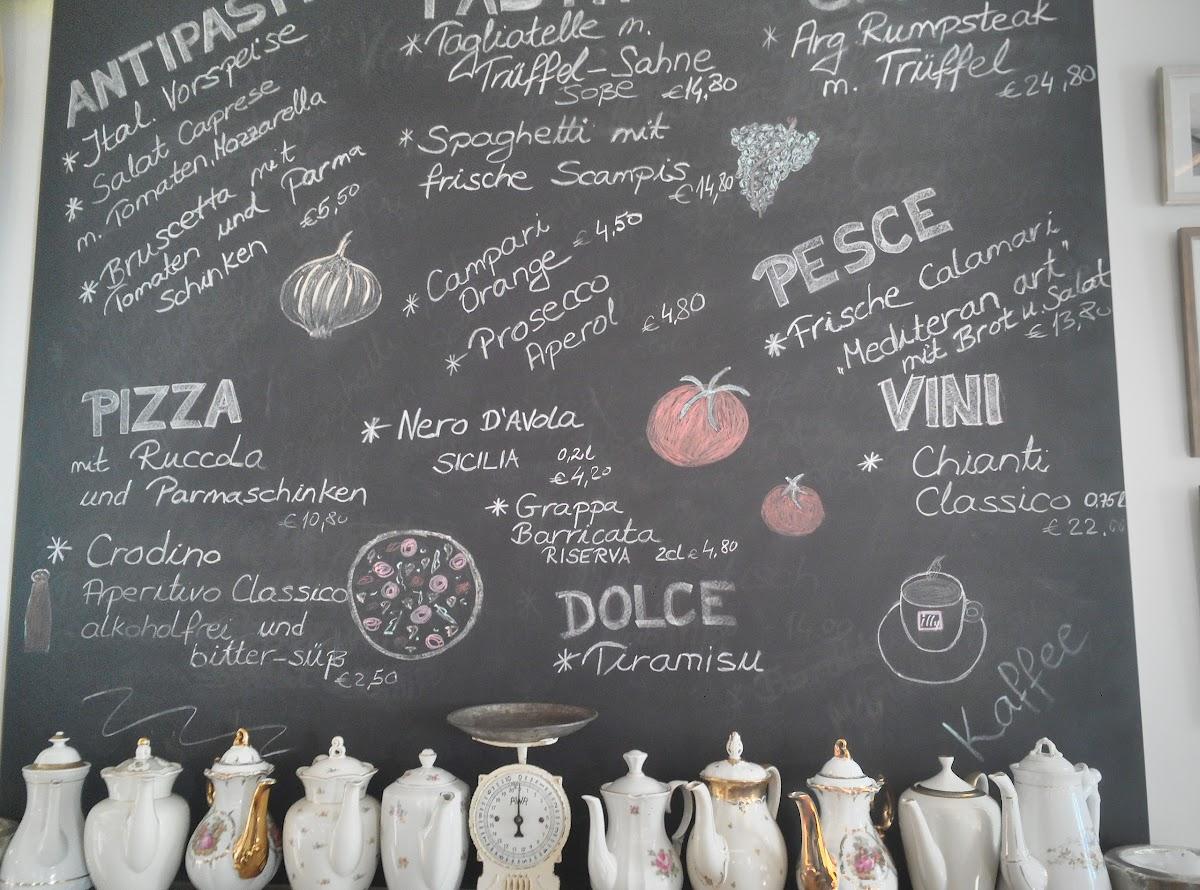 ANTIPASTI
* Ital. Vorspeise
* Salat Caprese
m. Tomaten, Mozzarella
* Bruscetta mit
Tomaten und Parma
Schinken €5,50
PASTA
* Tagliatelle m.
Trüffel-Sahne
Soße €14,80
* Spaghetti mit
frische Scampis €14,80
* Campari
Orange €4,50
* Prosecco
Aperol €4,80
* Arg Rumpsteak
m. Trüffel
€24,80
PESCE
* Frische Calamari
„Mediteran art"
mit Brot u. Salat
€13,80
PIZZA
mit Ruccola
und Parmaschinken
€10,80
* Crodino
Aperitivo Classico
alkoholfrei und
bitter-süß
€2,50
* Nero D'Avola
SICILIA 0,2l
€4,20
* Grappa
Barricata
RISERVA 2cl €4,80
DOLCE
* Tiramisu
VINI
* Chianti
Classico 0,75l
€22,00
illy
Kaffee